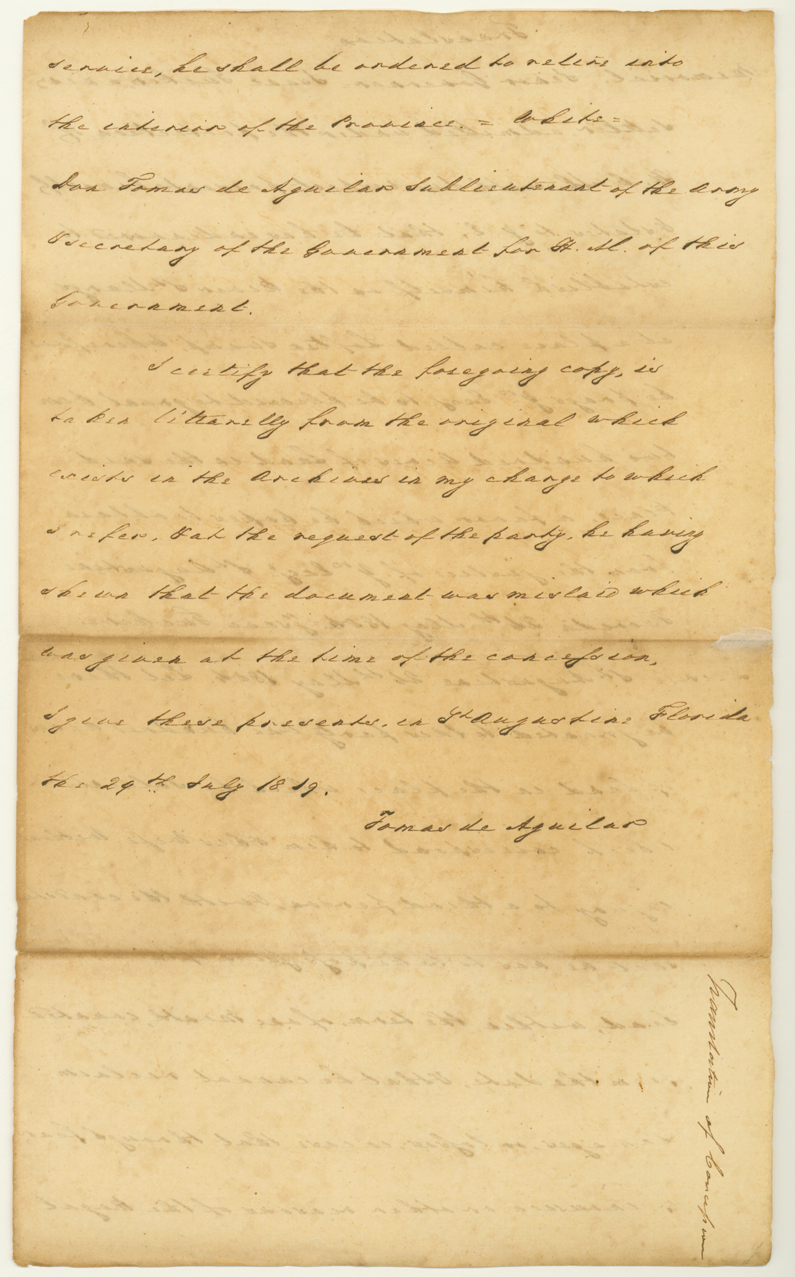 service, he shall be ordered to retire into
the interior of the Province. = White =
Don Tomas de Aguilar Sublieutenant of the army
& secretary of the Government for H. M. of this
Government.
I certify that the foregoing copy, is
taken litterelly from the original which
exists in the Archives in my charge to which
I refer, & at the request of the party, he having
shewn that the document was mislaid which
was given at the time of the concession,
I give these presents, in St Augustine Florida
the 29th July 1819.
Tomas de Aguilar
Translation of Concession